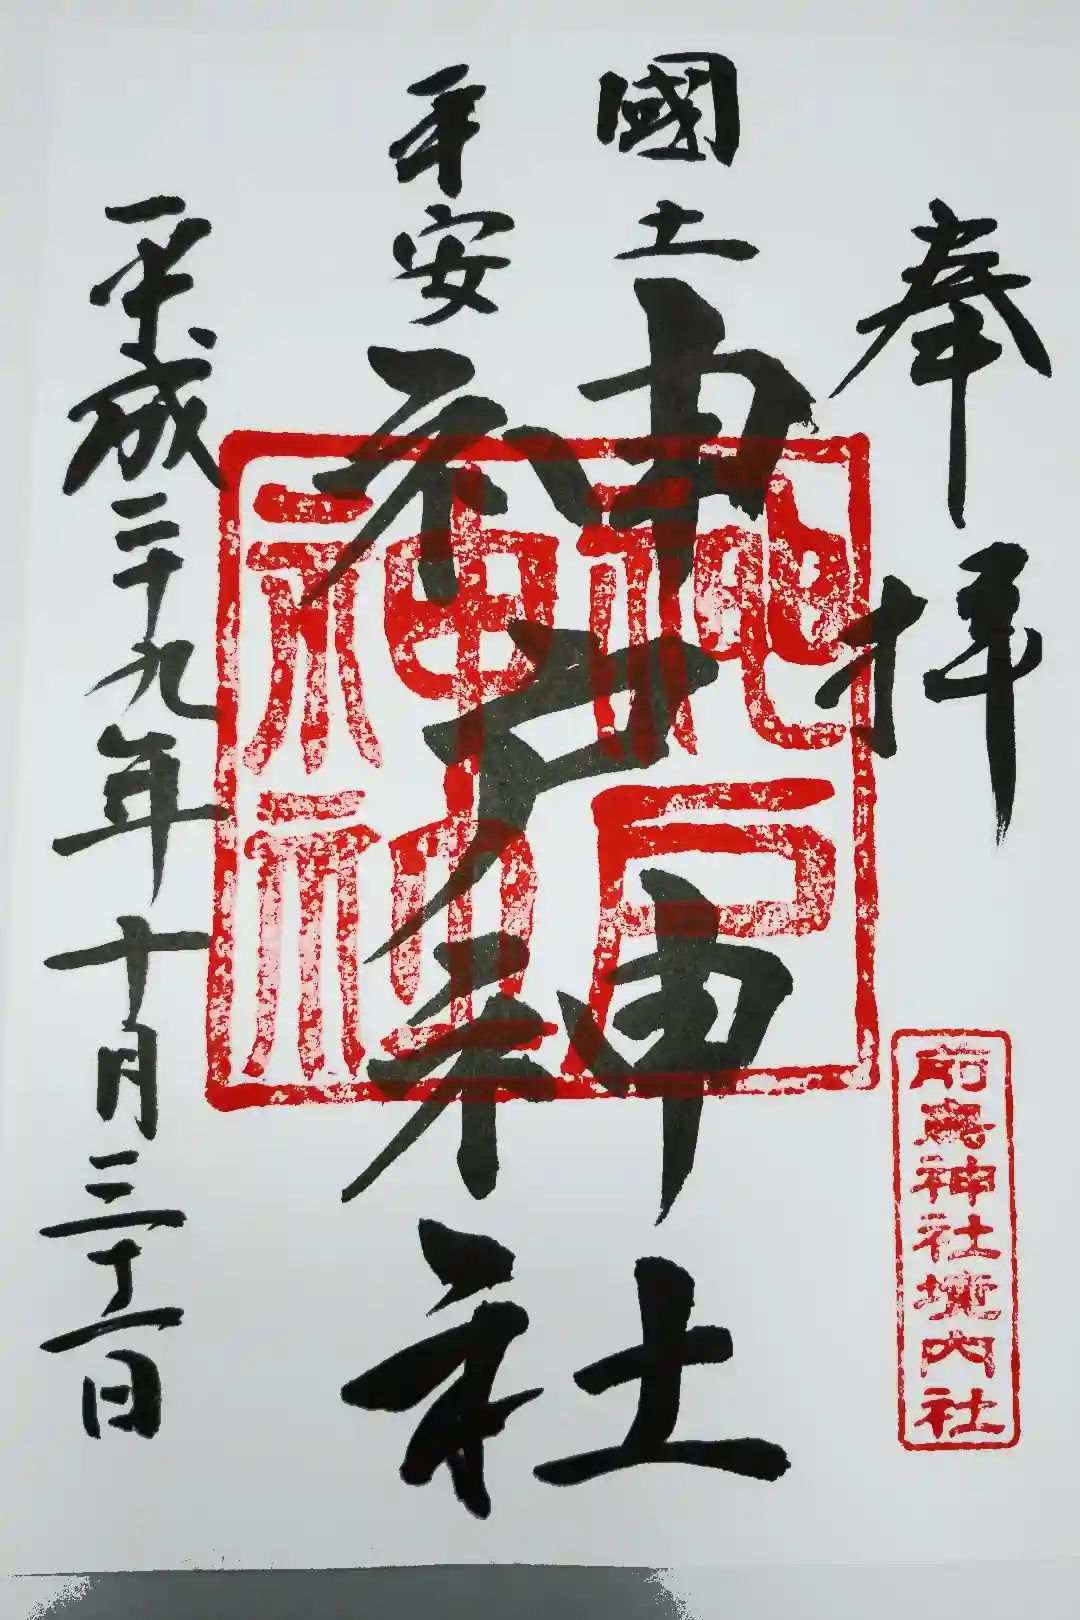 奉拝
國土
平安
神戸神社
平成二十九年十月三十一日
神戸神社
前鳥神社境内社